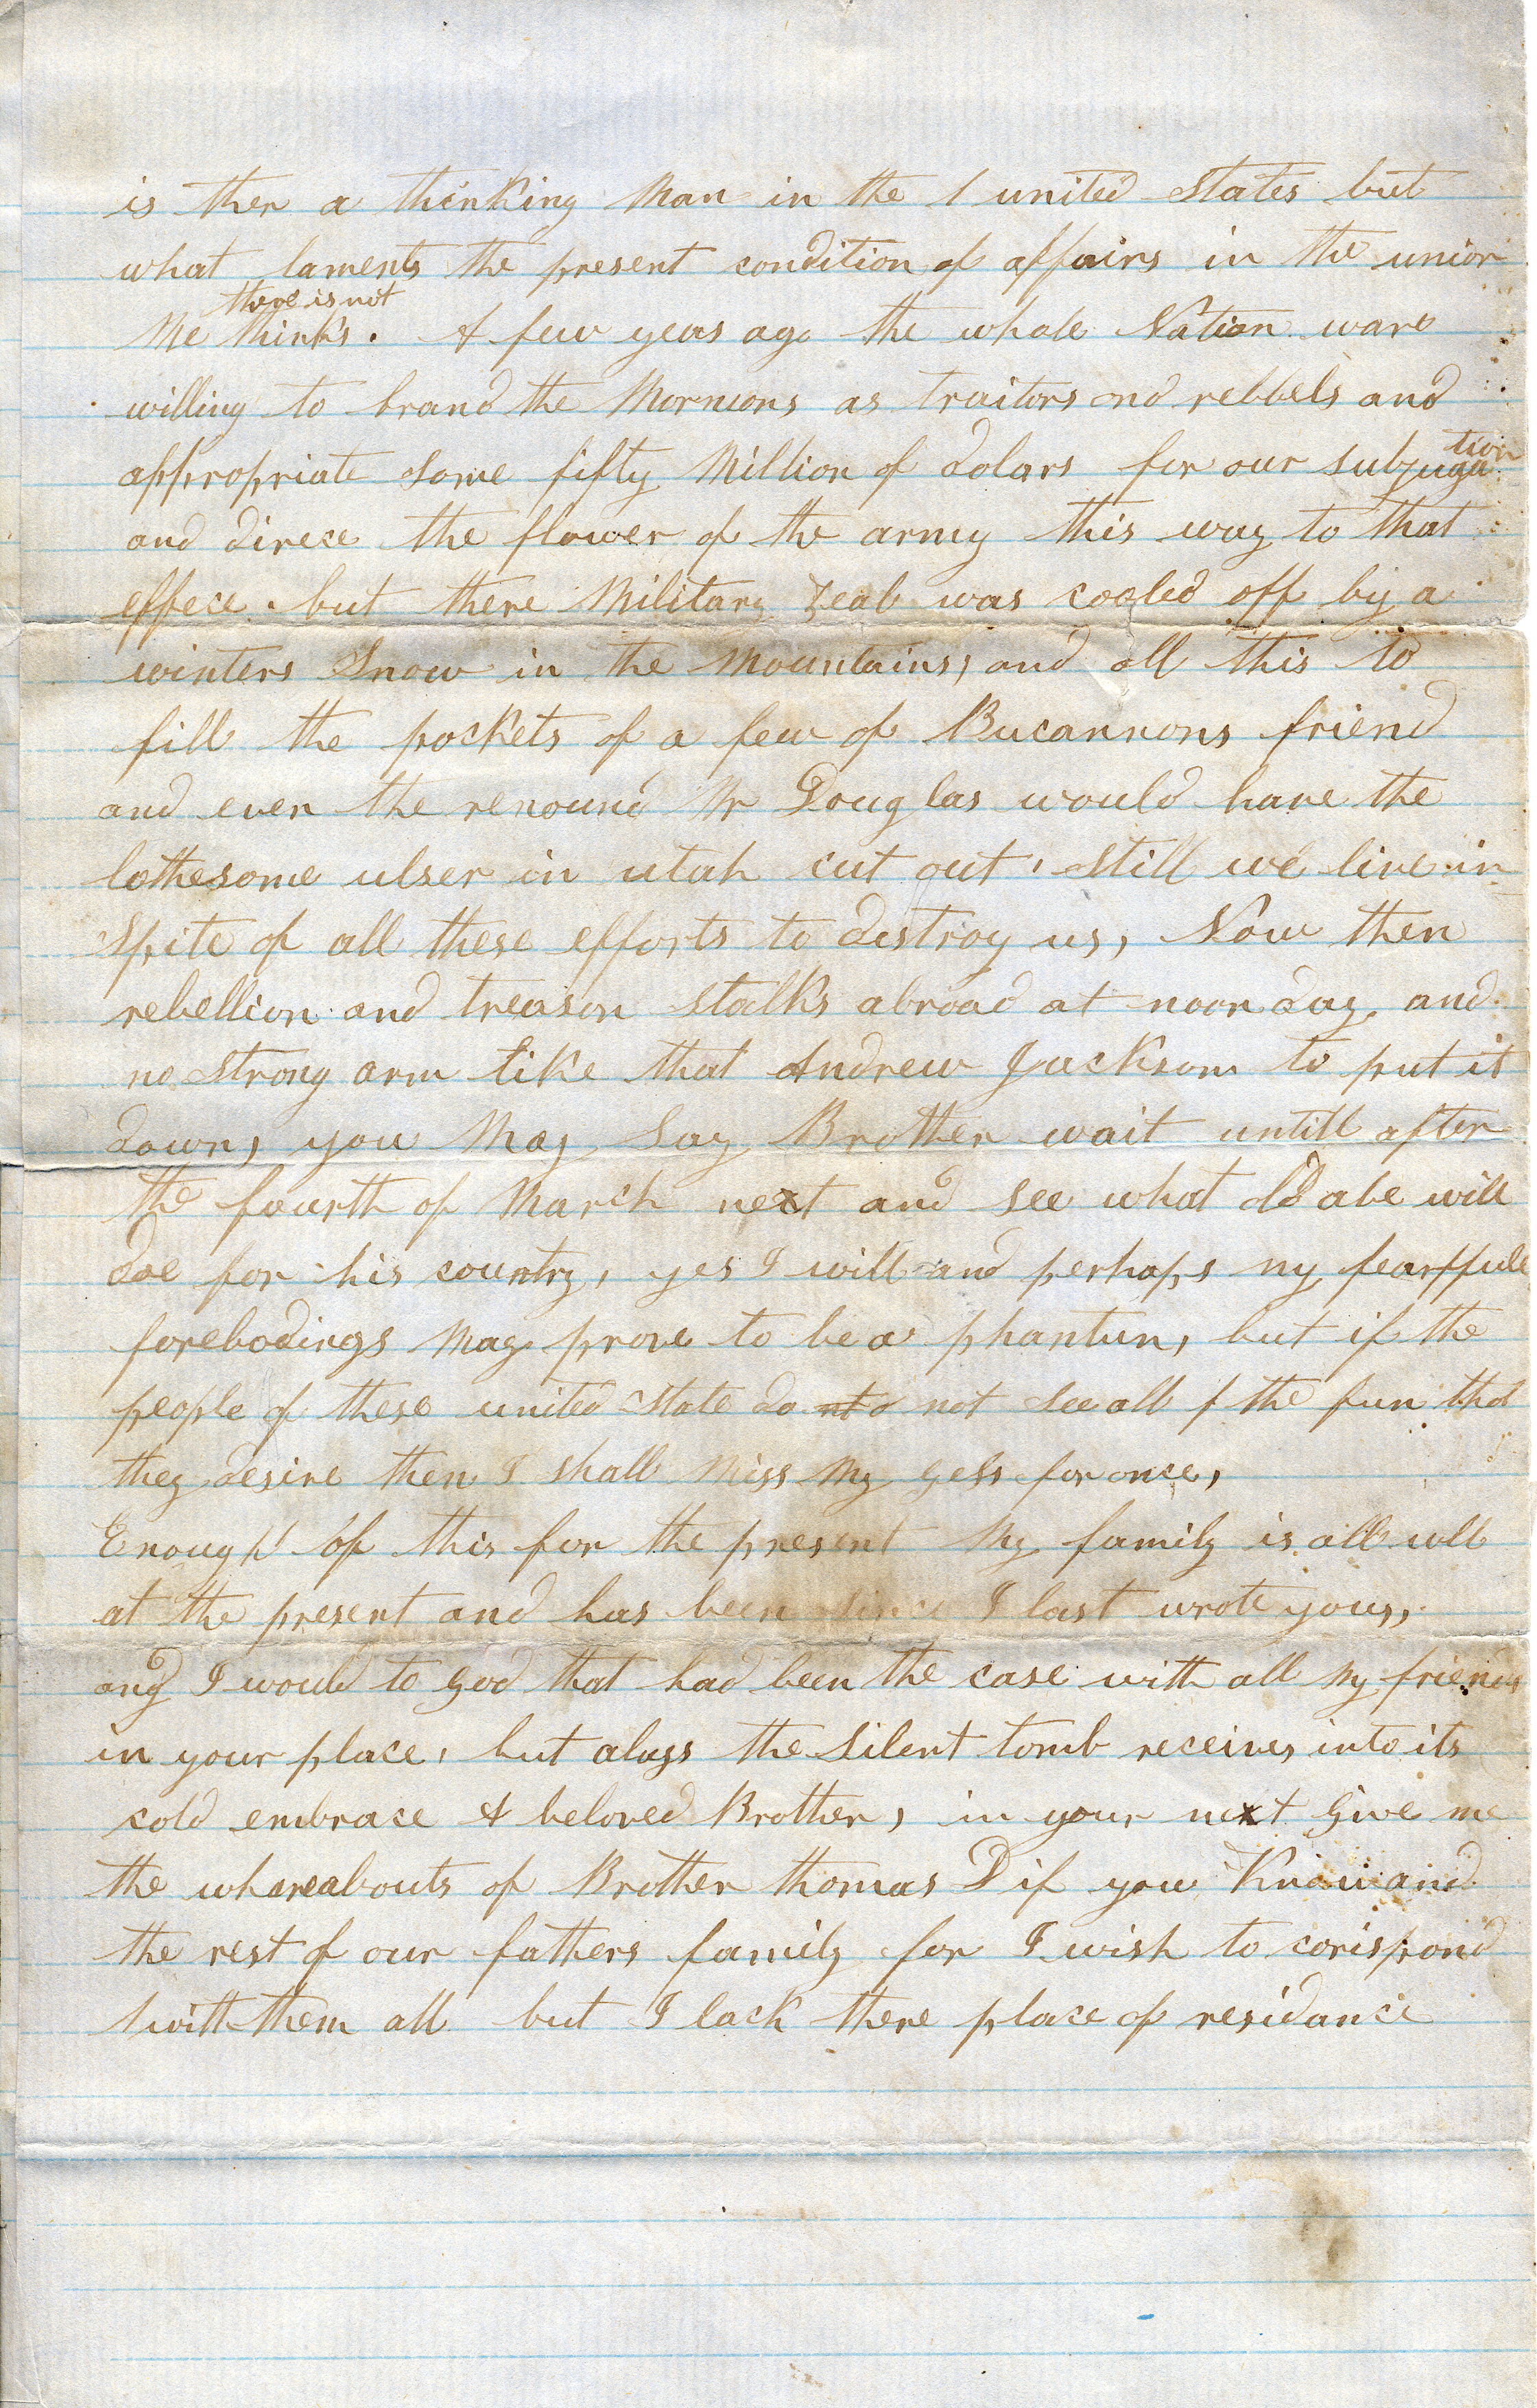 is ther a thinking Man in the 1 united States but
what laments the present condition of affairs in the union
there is not
Me thinks. A few years ago the whole Nation ware
willing to brand the Mormons as traitors and rebbels and
appropriate Some fifty Million of dolars for our subjugation
and direce the flower of the army this way to that
effece. but there Military Zeal was cooled off by a
winters Snow in the Mountains, and all this to
fill the pockets of a few of Bucannons friend
and even the renound Mr Douglas would have the
lothesome ulser in utah cut out, Still we live in
Spite of all these efforts to destroy us, Now then
rebellion and treason Stalks abroad at noon day, and
no Strong arm like that Andrew Jackson to put it
down, you May Say Brother wait untill after
the fourth of March next and see what old abe will
doe for his country, yes I will and perhaps my fearffule
forebodings May prove to be a phantum, but if the
people of these united State do not See all f the fun that
they desire then I shall Miss My gess for once,
Enough of this for the present My family is all well
at the present and has been since I last wrote yous,
and I would to God that had been the case with all My friends
in your place, but alass the Silent tomb receives into its
cold embrace A beloved Brother, in your next Give me
the whareabouts of Brother thomas D if you Know and
the rest of our fathers family for I wish to corispond
with them all but I lack there place of residance